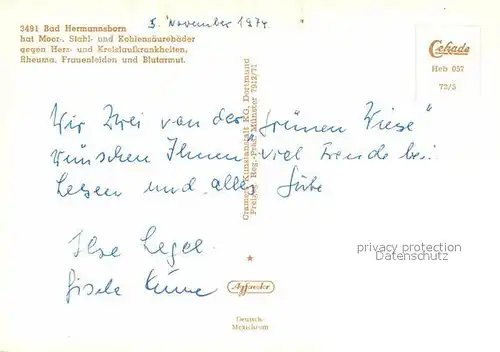 5. November 1974
3491 Bad Hermannsborn
hat Moor-, Stahl- und Kohlensäurebäder
gegen Herz- und Kreislaufkrankheiten,
Rheuma, Frauenleiden und Blutarmut.
Cekade
Heb 057
72/5
Wir Zwei von der "Grünen Wiese"
wünschen Ihnen viel Freude bei
Lesen und alles Gute
Ilse
Gisela
Cramers Kunstanstalt KG. Dortmund
Freigeg. Reg.-Präs. Münster
privacy protection
Datenschutz
Deutsche